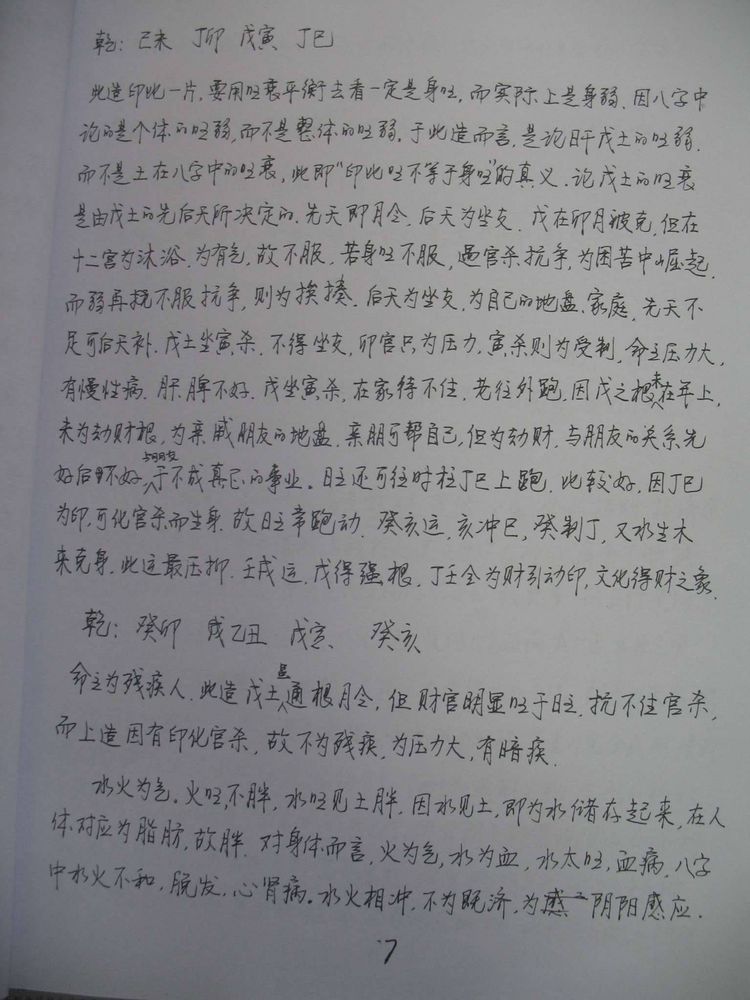 乾: 己未 丁卯 戊寅 丁巳
此造印比一片,要用旺衰平衡去看一定是身旺,而实际上是身弱.因八字中
论的是个体的旺弱,而不是整体的旺弱.于此造而言,是论日干戊土的旺弱.
而不是土在八字中的旺衰,此即"印比旺不等于身旺"的真义.论戊土的旺衰
是由戊土的先后天所决定的.先天即月令,后天为坐支.戊在卯月被克,但在
十二宫为沐浴.为有气,故不服,若身旺不服,遇官杀抗争,为困苦中崛起,
而弱再挠不服抗争,则为挨揍.后天为坐支,为自己的地盘.家庭,先天不
足可后天补.戊土坐寅.杀.不得坐支,卯官只为压力,寅杀则为受制,命主压力大,
有慢性病.肝.脾不好.戊坐寅杀,在家待不住,老往外跑,因戊之根未在年上,
未为劫财根,为亲戚朋友的地盘.亲朋可帮自己,但为劫财,与朋友的关系先
好后不好,与朋友干不成真正的事业。日主还可往时柱丁巳上跑.此较好,因丁巳
为印,可化官杀而生身.故日主常跑动.癸亥运,亥冲巳,癸制丁,又水生木
来克身.此运最压抑.壬戌运,戊得强根,丁壬合为财引动印,文化得财之象.
乾: 癸卯 乙丑 戊寅 癸亥
命主为残疾人.此造戊土是通根月令,但财官明显旺于日主.抗不住官杀,
而上造因有印化官杀,故不为残疾.为压力大,有暗疾.
水火为气。火旺,不胖,水旺见土胖.因水见土,即为水储存起来,在人
体对应为脂肪,故胖.对身体而言,火为气,水为血,水太旺,血病.八字
中水火不和,脱发,心肾病。水火相冲.不为既济,为阴阳感应.
7